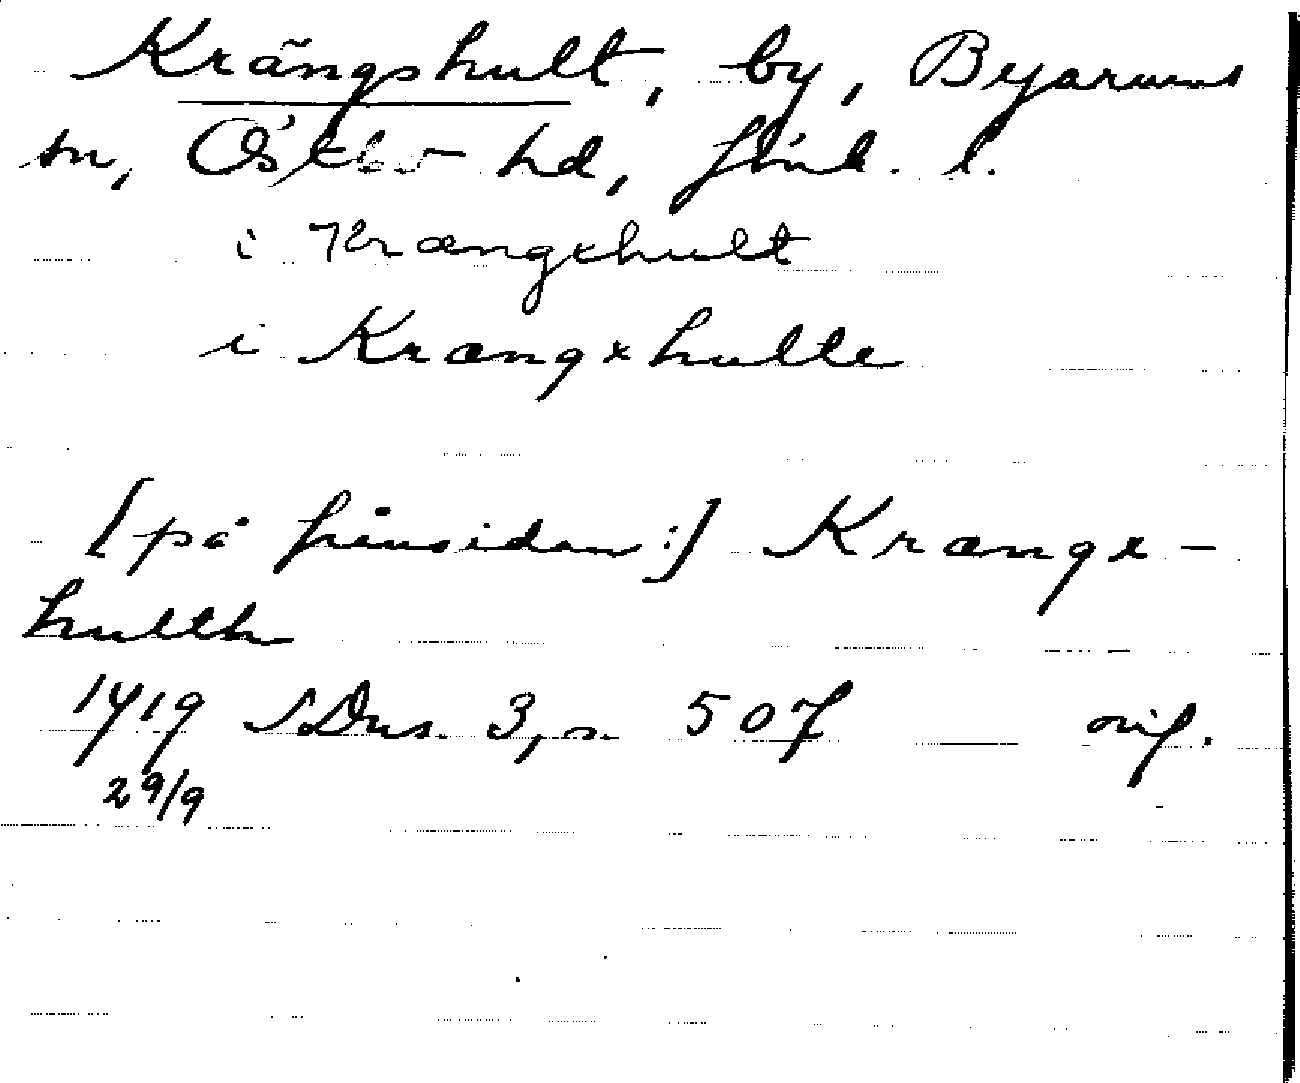 Krängshult, by, Byarums
sn, Östbo hd, Jönk. l.
i Krængxhult
i Krængxhulte
[på frånsidan:] Krængx-
hullth
1419 SDns. 3, s. 507 orig.
29/9